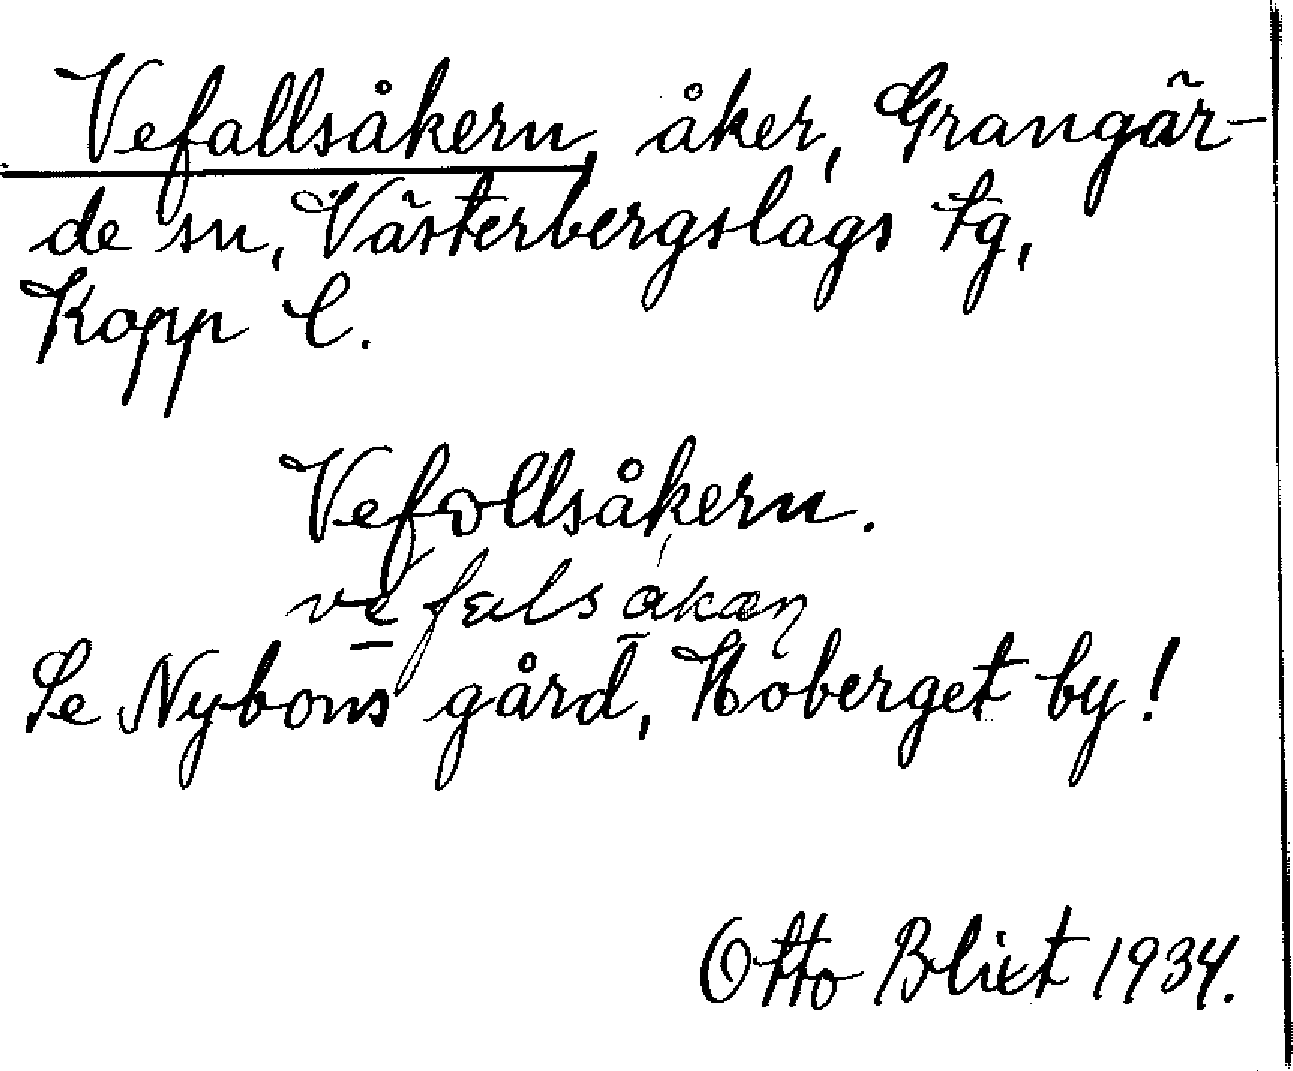 Vefallsåkern, åker, Grangär-
de sn, Västerbergslags tg,
Kopp l.
Vefallsåkern.
Se Nybons gård, Hoberget by!
Otto Blixt 1934.